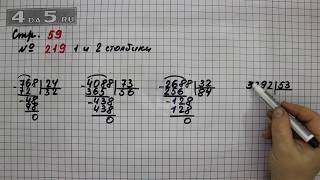 4da5.ru
Стр. 59
№ 219 1 и 2 столбики
-7688 | 24 -4088 | 73 -2688 | 32 3392 | 53
72 | 32 365 | 56 256 | 84
-48 -438 -128
48 438 128
0 0 0